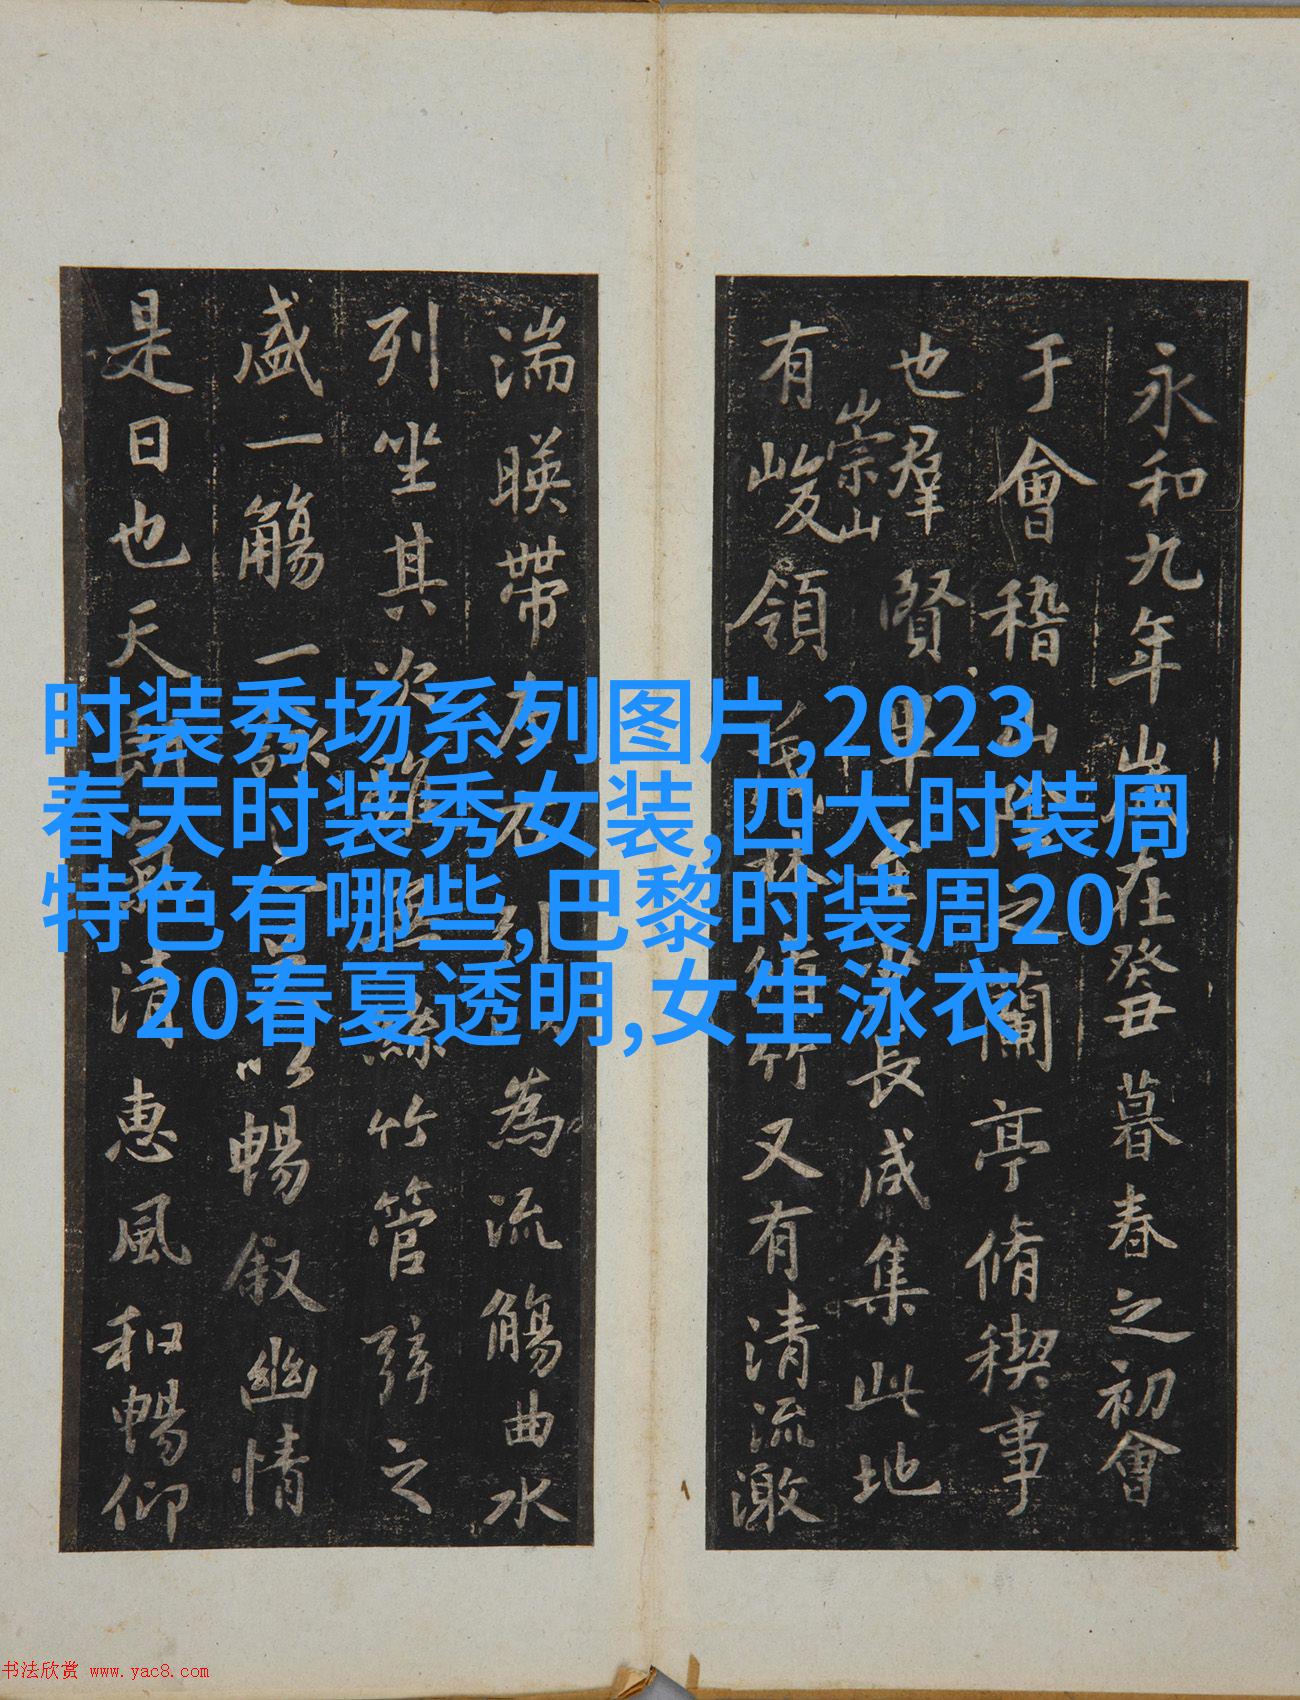 时装秀场系列图片,2023
春天时装秀女装,四大时装周
特色有哪些,巴黎时装周20
20春夏透明,女生泳衣
永和九年歲在癸丑暮春之初會
于會稽山陰之蘭亭脩稧事
也羣賢畢至長咸集此地
有崇山峻領茂林脩竹又有清流激
湍暎帶左右引為流觴曲水
列坐其次雖無絲竹管弦之
盛一觴一詠以暢叙幽情
是日也天朗氣清惠風和暢仰
书法欣赏 www.yac8.com